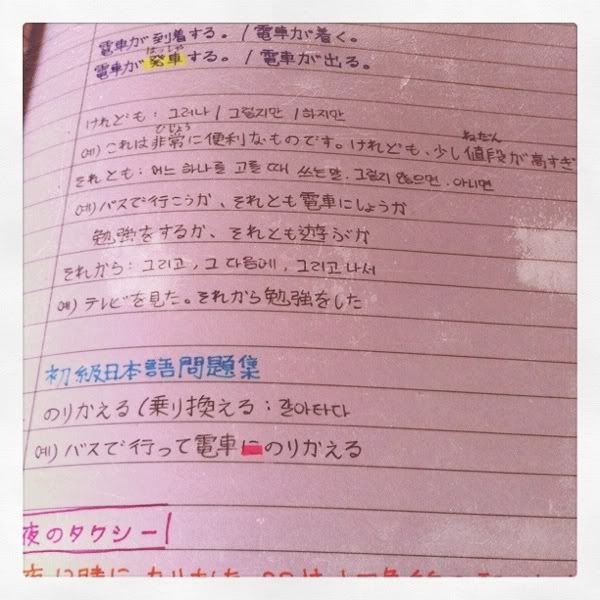 電車が到着する。/ 電車が着く。
はっしゃ
電車が発車する。/ 電車が出る。
けれども : 그러나 / 그렇지만 / 하지만
ひじょう ねだん
예) これは非常に便利なものです。けれども、少し値段が高すぎ
それとも : 어느 하나를 고를 때 쓰는 말. 그렇지 않으면. 아니면
예) バスで行こうか、それとも電車にしようか
勉強をするか、それとも遊ぶか
それから : 그리고, 그 다음에, 그리고 나서
예) テレビを見た。それから勉強をした
初級日本語問題集
のりかえる (乗り換える : 갈아타다
예) バスで行って電車にのりかえる
夜のタクシー